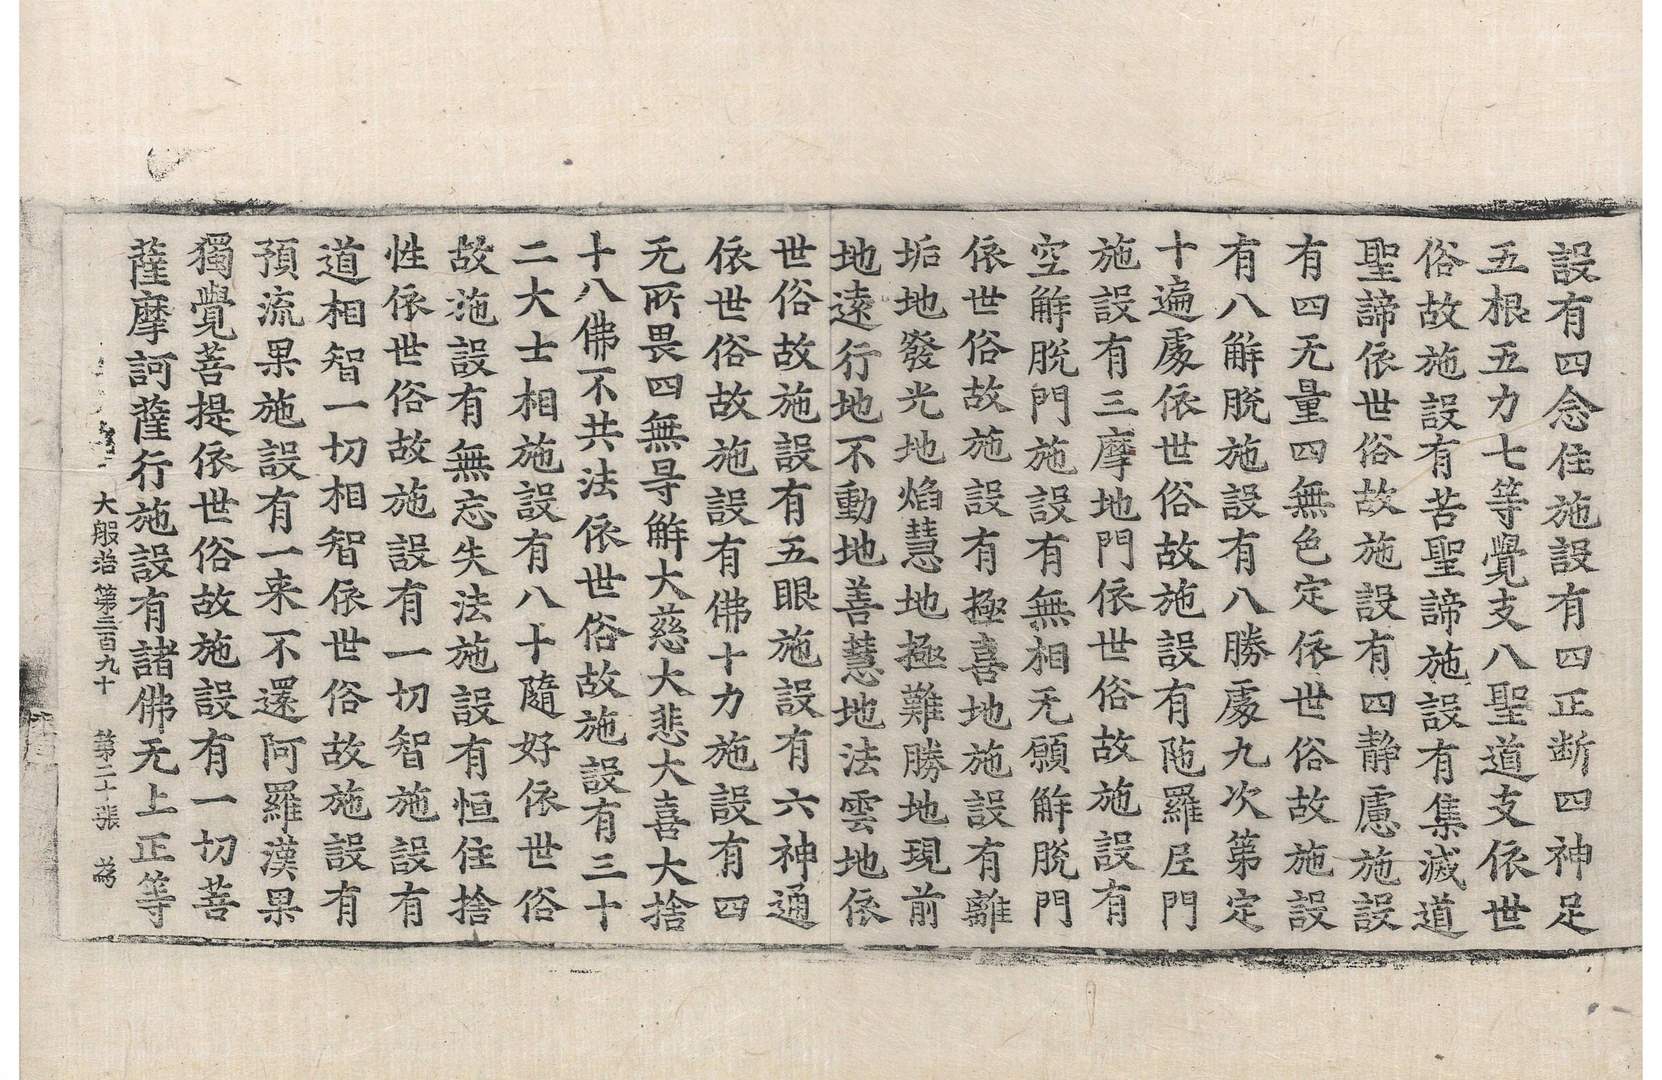 設有四念住施設有四正断四神足
五根五力七等覺支八聖道支依世
俗故施設有苦聖諦施設有集滅道
聖諦依世俗故施設有四静慮施設
有四无量四無色定依世俗故施設
有八解脫施設有八勝處九次第定
十遍處依世俗故施設有陁羅尼門
施設有三摩地門依世俗故施設有
空解脫門施設有無相无願解脫門
依世俗故施設有極喜地施設有離
垢地發光地焰慧地極難勝地現前
地遠行地不動地善慧地法雲地依
世俗故施設有五眼施設有六神通
依世俗故施設有佛十力施設有四
无所畏四無导解大慈大悲大喜大捨
十八佛不共法依世俗故施設有三十
二大士相施設有八十隨好依世俗
故施設有無忘失法施設有恒住捨
性依世俗故施設有一切智施設有
道相智一切相智依世俗故施設有
預流果施設有一来不還阿羅漢果
獨覺菩提依世俗故施設有一切菩
薩摩訶薩行施設有諸佛无上正等
大般 第三百九十 第二十張